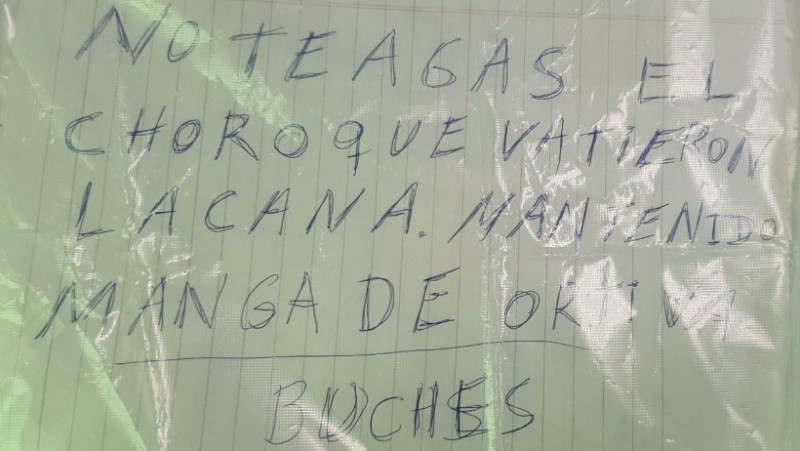 NO TE AGAS EL
CHORO QUE VATIERON
LA CANA. MANTENIDO
MANGA DE ORTIVA
BUCHES